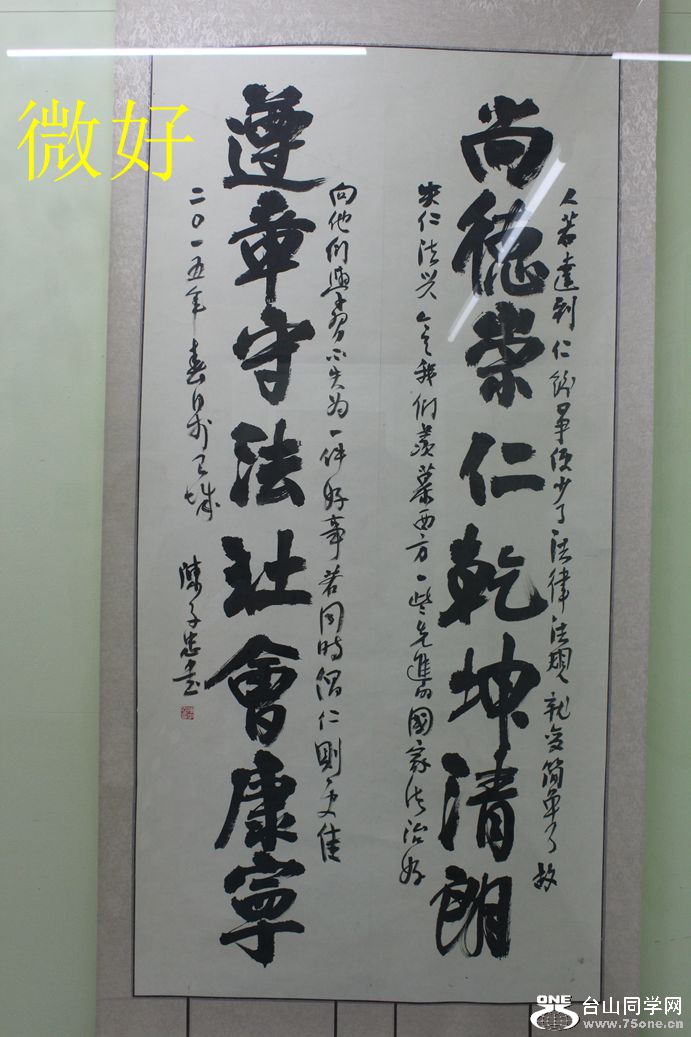 微好
人若達到仁 少了法律法規就變簡單了 故
尚德崇仁乾坤清朗
仁法兴 我们羡慕西方一些先進的國家法治好
向他们學習不失为一件好事若同時 仁則更佳
遵章守法社會康寧
二〇一五年春月於 城 陳子忠書
ONE
台山同学网
www.75one.cn